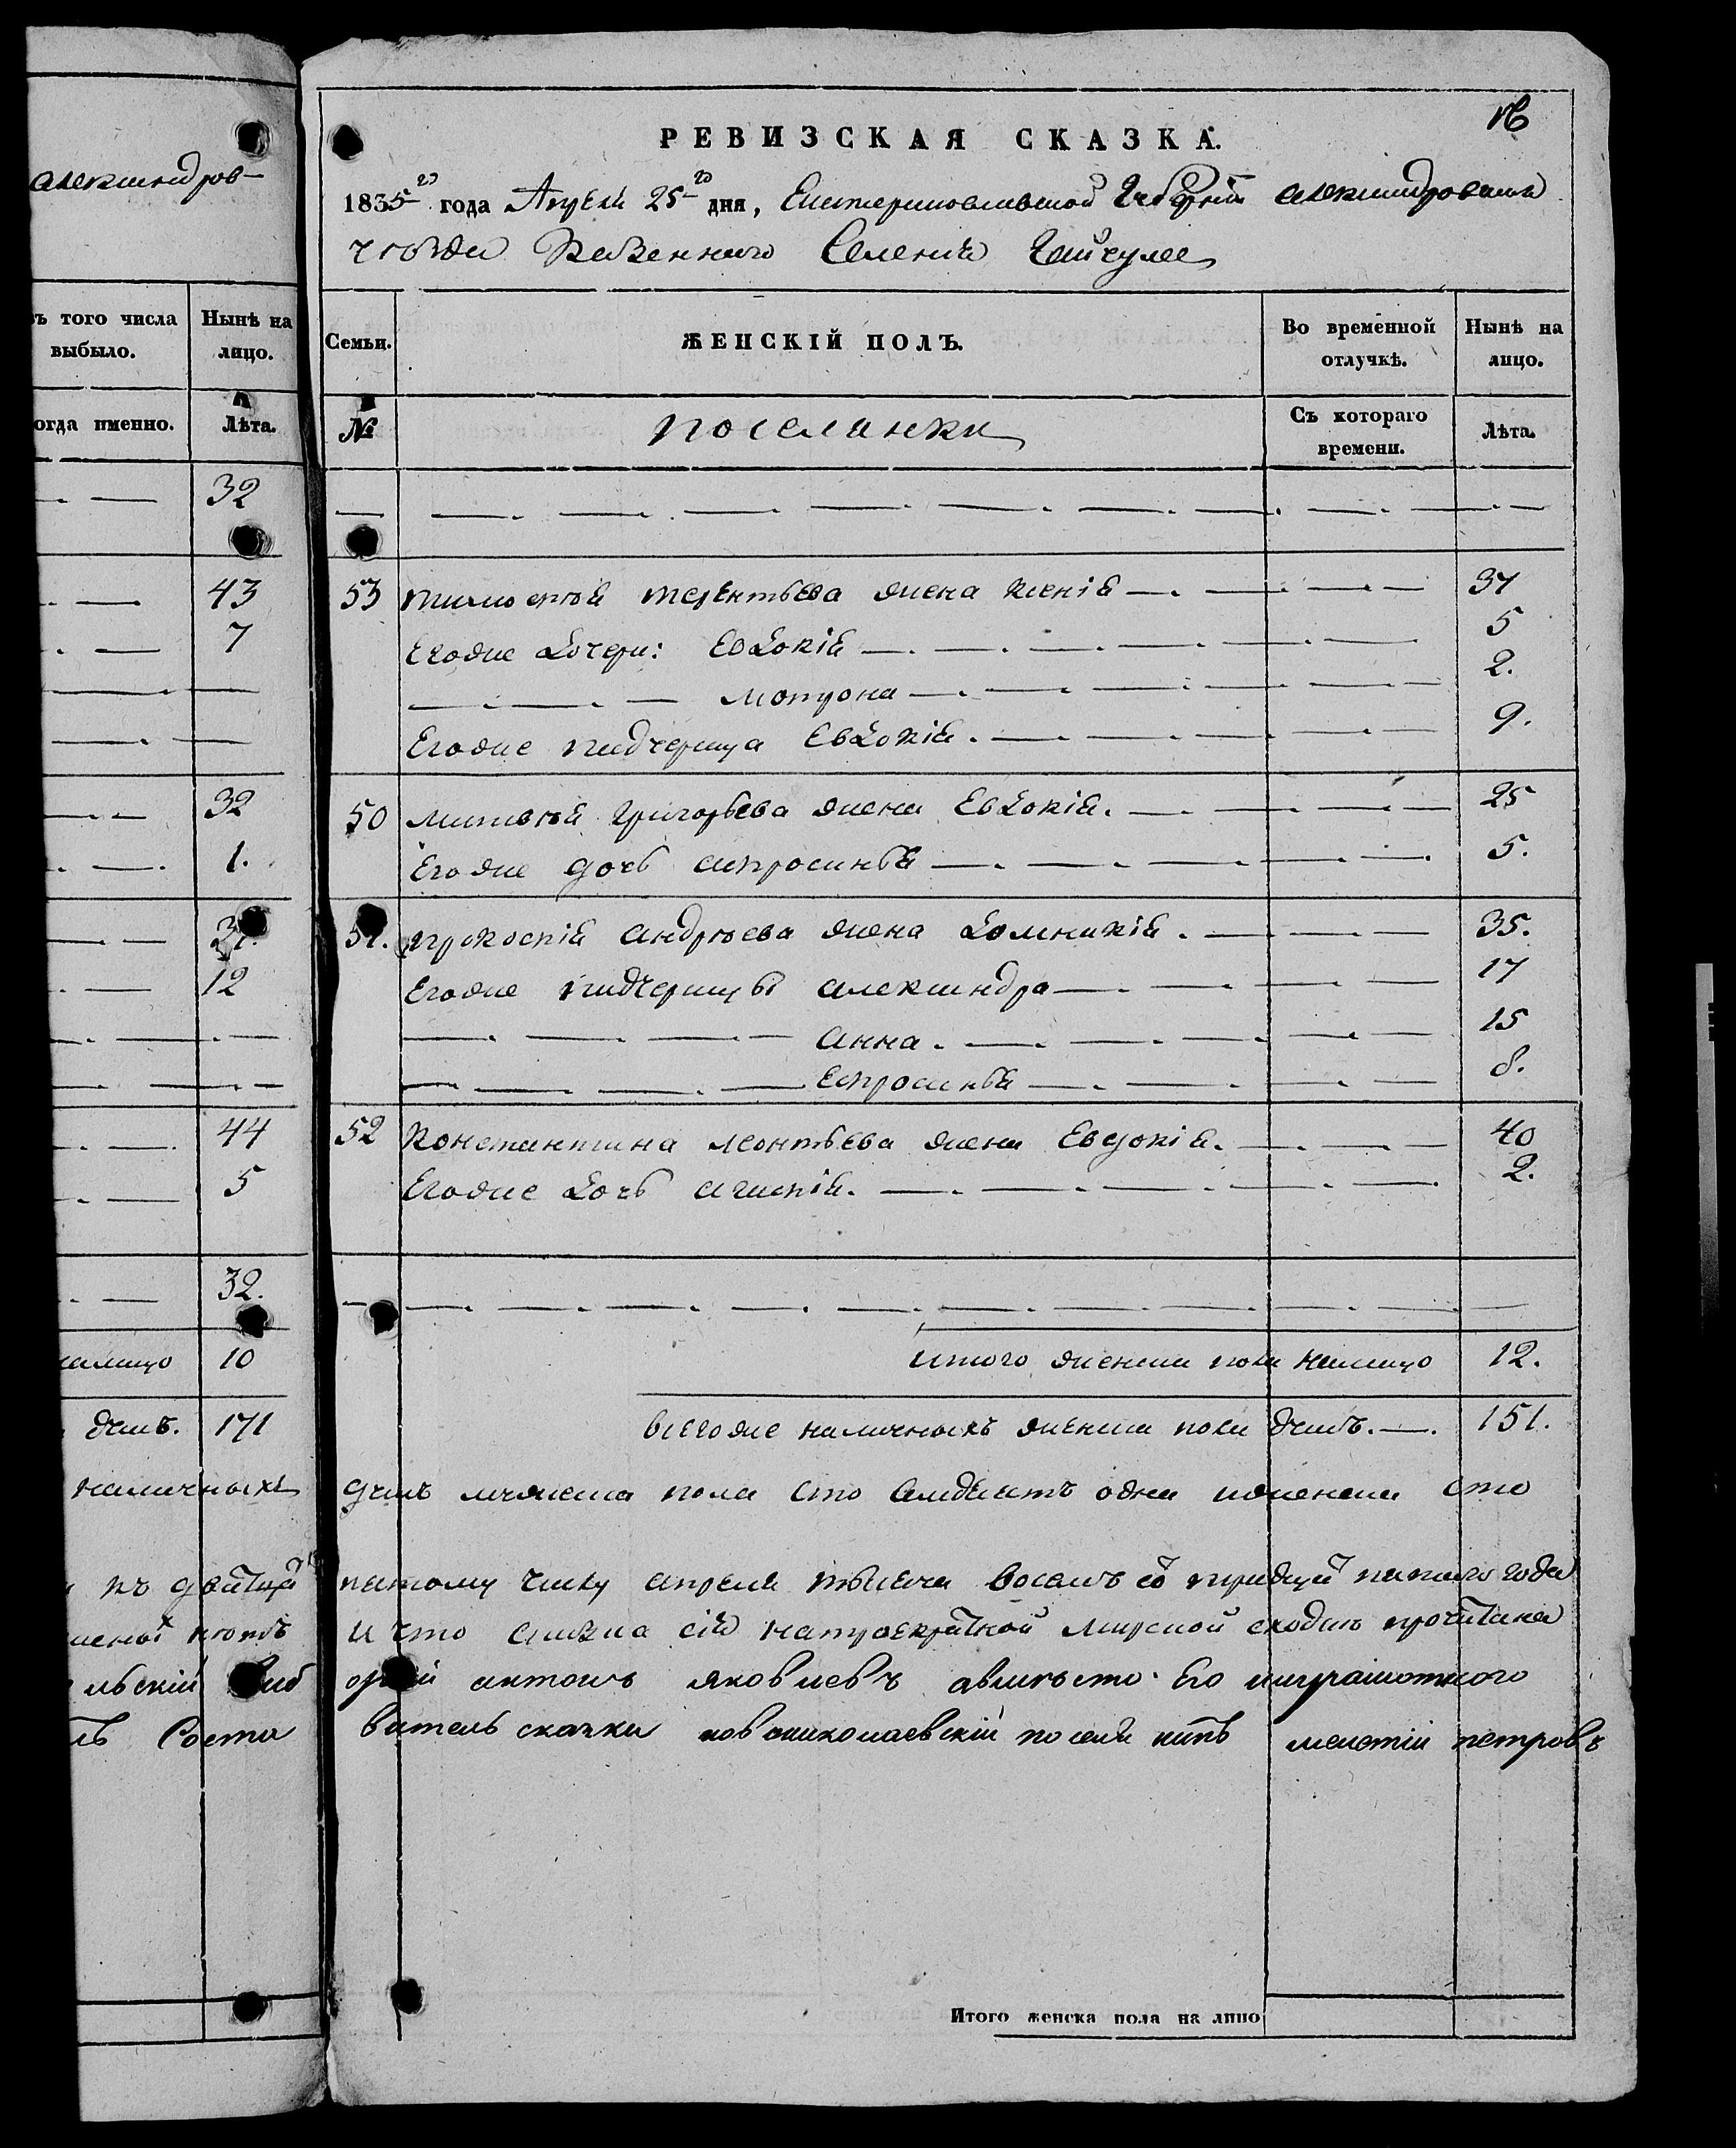 александров-
въ того числа
выбыло.
Нынѣ на
лицо.
огда именно.
Лѣта.
32
43
7
32
1.
12
44
5
32.
налицо 10
душъ. 171
наличныхъ
16
РЕВИЗСКАЯ СКАЗКА.
1835го года Апреля 25го дня, Екатеринославской Губерніи александровскаго
уѣзда Казеннаго Селенія Гайчула
Семьи.
ЖЕНСКІЙ ПОЛЪ.
Во временной
отлучкѣ.
Нынѣ на
лицо.
№
поселянки
Съ котораго
времени.
Лѣта.
53 тимофѣя терентьева жена ксенія 37
Егоже дочери: Евдокія 5
мотрона 2.
Егоже падчерица Евдокія. 9.
50 матвѣя григорьева жена Евдокія. 25
Егоже дочь апросинья 5.
51. прокофія андрѣева жена домникія. 35.
Егоже падчерицы александра 17
анна. 15
Епросинья 8.
52 Константина леонтьева жена Евдокія. 40
Егоже дочь агафія. 2.
итого женска пола налицо 12.
всегоже наличныхъ женска пола душъ. 151.
душъ мужеска пола сто семдесятъ одна ижненска сто
пятому числу апреля тысяча восемъ сотъ тридцать пятаго года
и что сказка сія натроекратной мирской сходкѣ прочитана
антонъ яковлевъ авмѣсто его награмотного
витель сказки новониколаевскій поселянинъ мелетіи петровъ
Итого женска пола на лицо